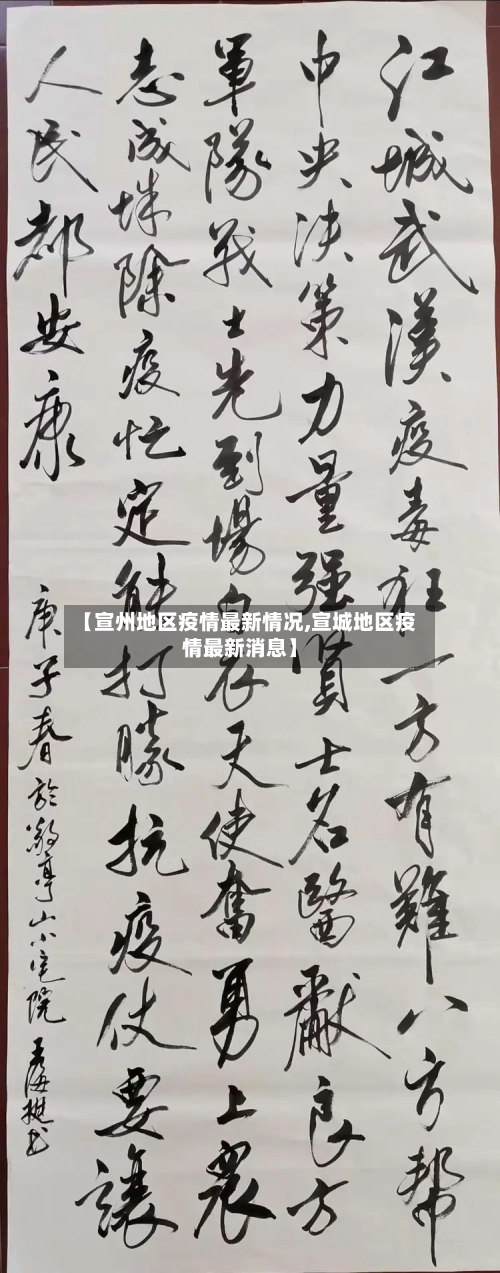 江城武漢疫毒狂一方有難八方幫
中央決策力量强賢士名醫獻良方
軍隊戰士先到場白衣天使奮勇上
衆志成城除疫忙定能打勝抗疫仗要讓
人民都安康
庚子春於敬亭山小宅院
【宣州地区疫情最新情况,宣城地区疫
情最新消息】